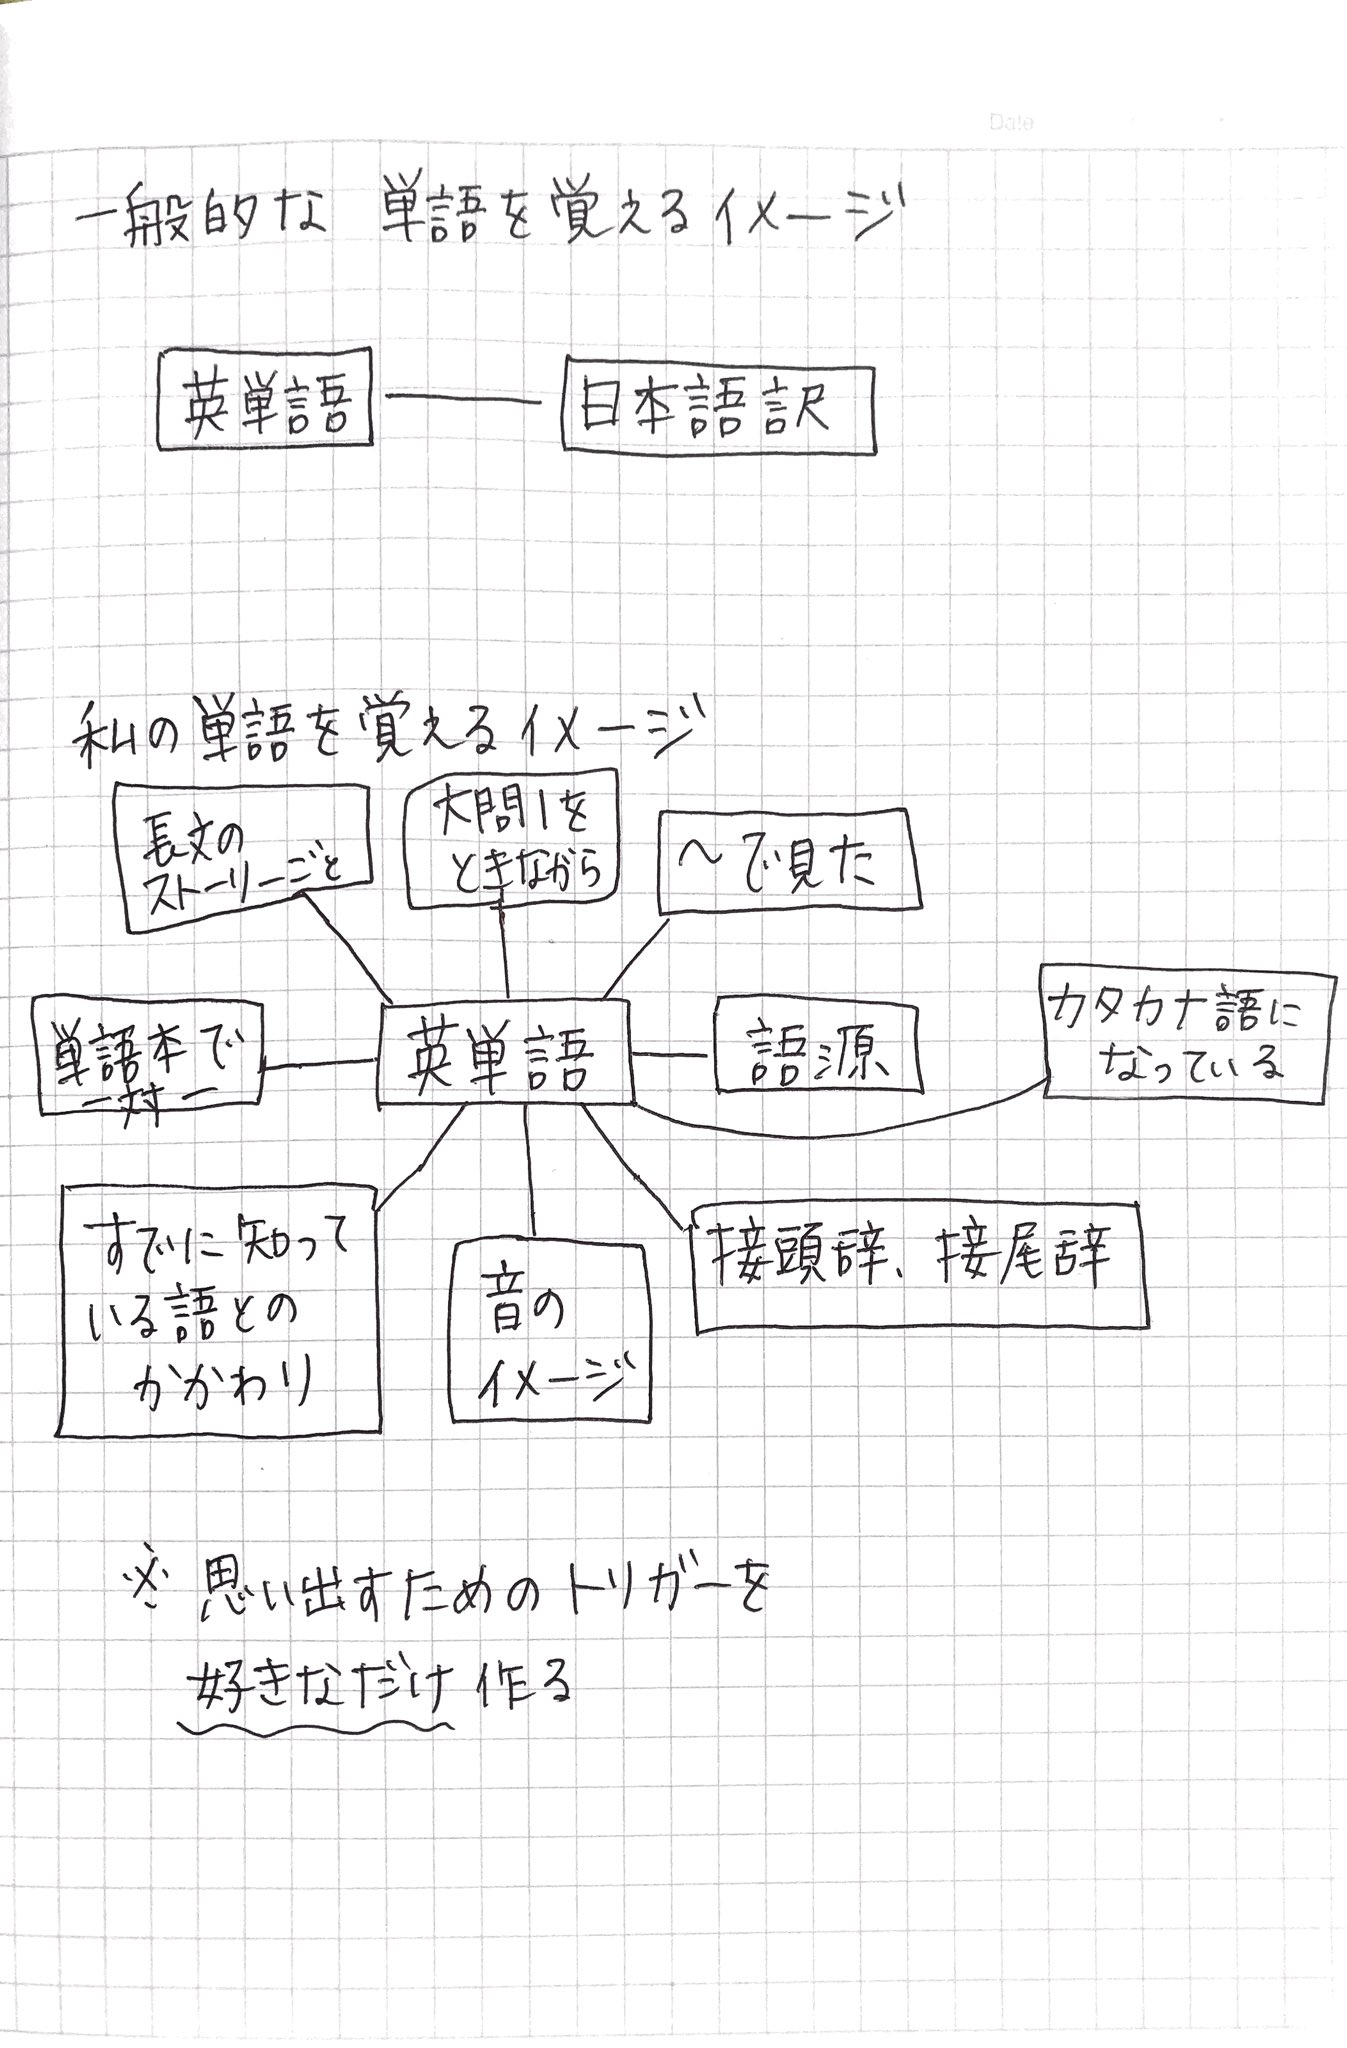 Date
一般的な 単語を覚えるイメージ
英単語
日本語訳
私の単語を覚えるイメージ
長文の
ストーリーごと
大問1を
ときながら
〜で見た
単語本で
一対一
英単語
語源
カタカナ語に
なっている
すでに知って
いる語との
かかわり
音の
イメージ
接頭辞、接尾辞
※ 思い出すためのトリガーを
好きなだけ作る